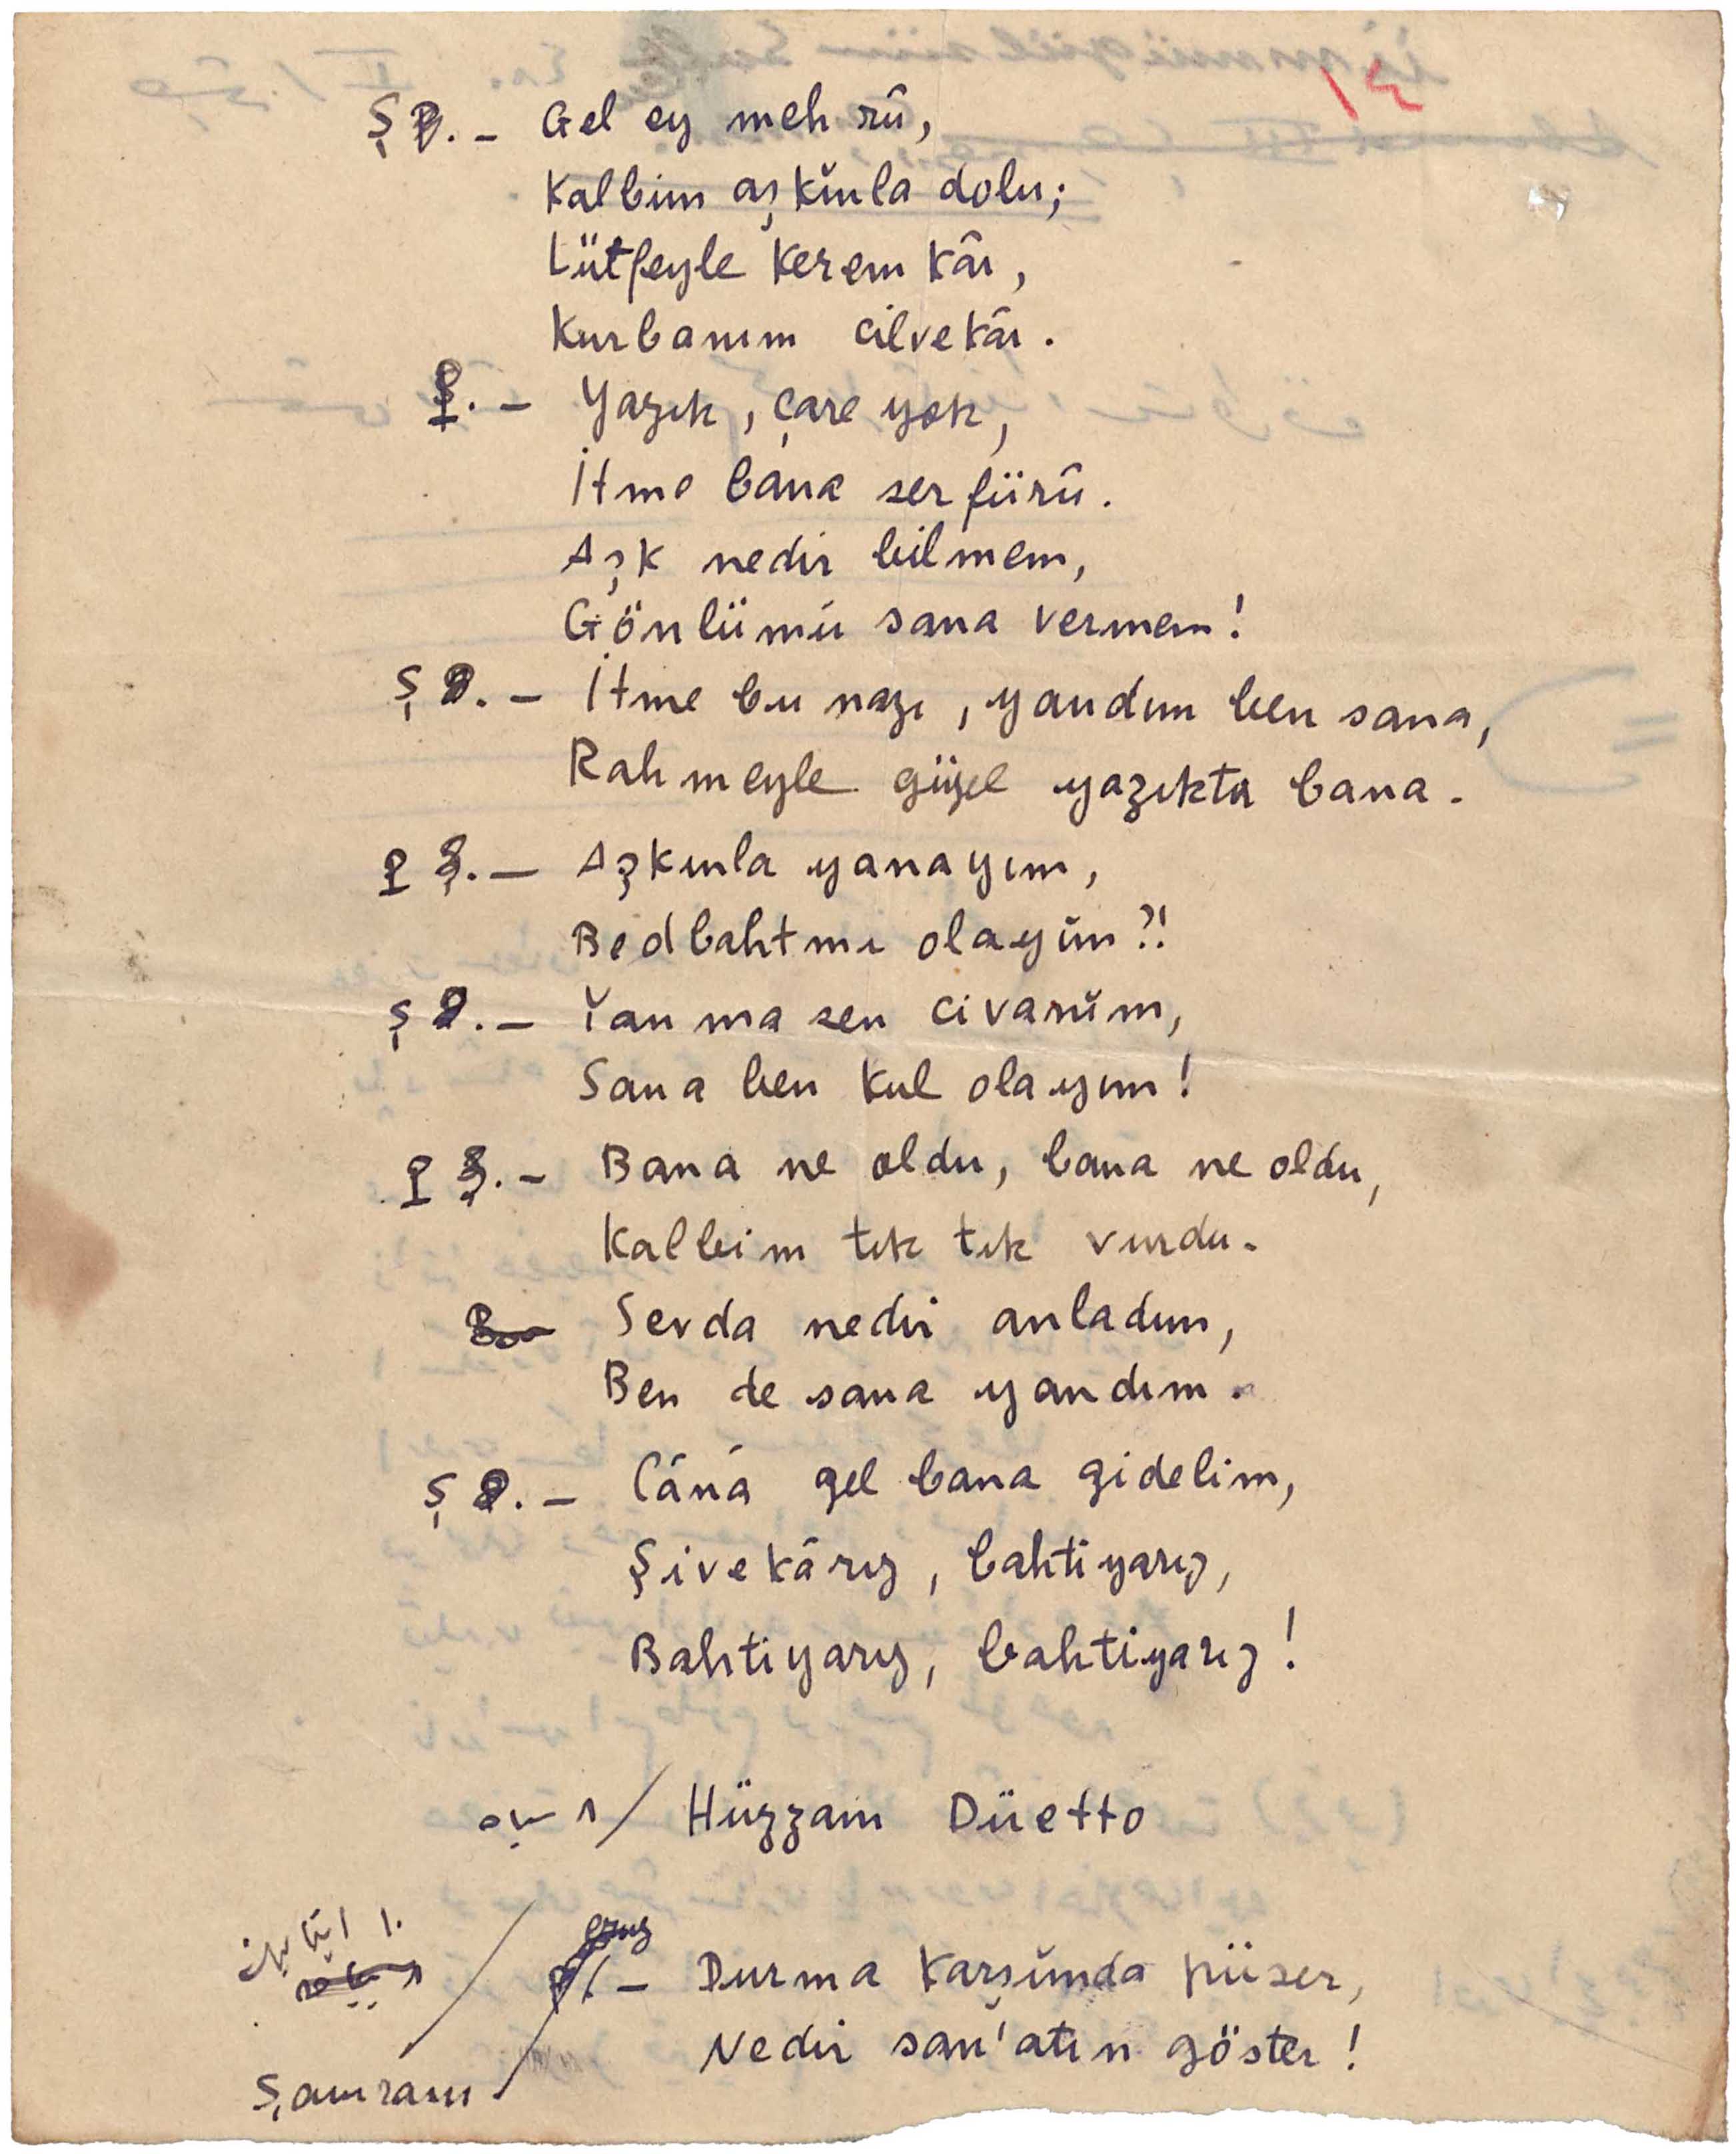 Ş P. – Gel ey meh rû,
Kalbim aşkınla dolu;
Lütfeyle kerem kâr,
Kurbanım cilvekâr.
P. – Yazık, çare yok,
İtme bana ser fürû.
Aşk nedir bilmem,
Gönlümü sana vermem!
Ş P. – İtme bu nazı, yandım ben sana,
Rahmeyle güzel yazıktır bana.
P Ş. – Aşkınla yanayım,
Bedbahtmı olayım?!
Ş P. – Yanma sen civanım,
Sana ben kul olayım!
P Ş. – Bana ne oldu, bana ne oldu,
Kalbim tık tık vurdu.
Sevda nedir anladım,
Ben de sana yandım.
Ş P. – Cânâ gel bana gidelim,
Şivekârız, bahtiyarız,
Bahtiyarız, bahtiyarız!
/ Hüzzam Düetto
– Durma karşımda püser,
Nedir san'atın göster!
Şamram